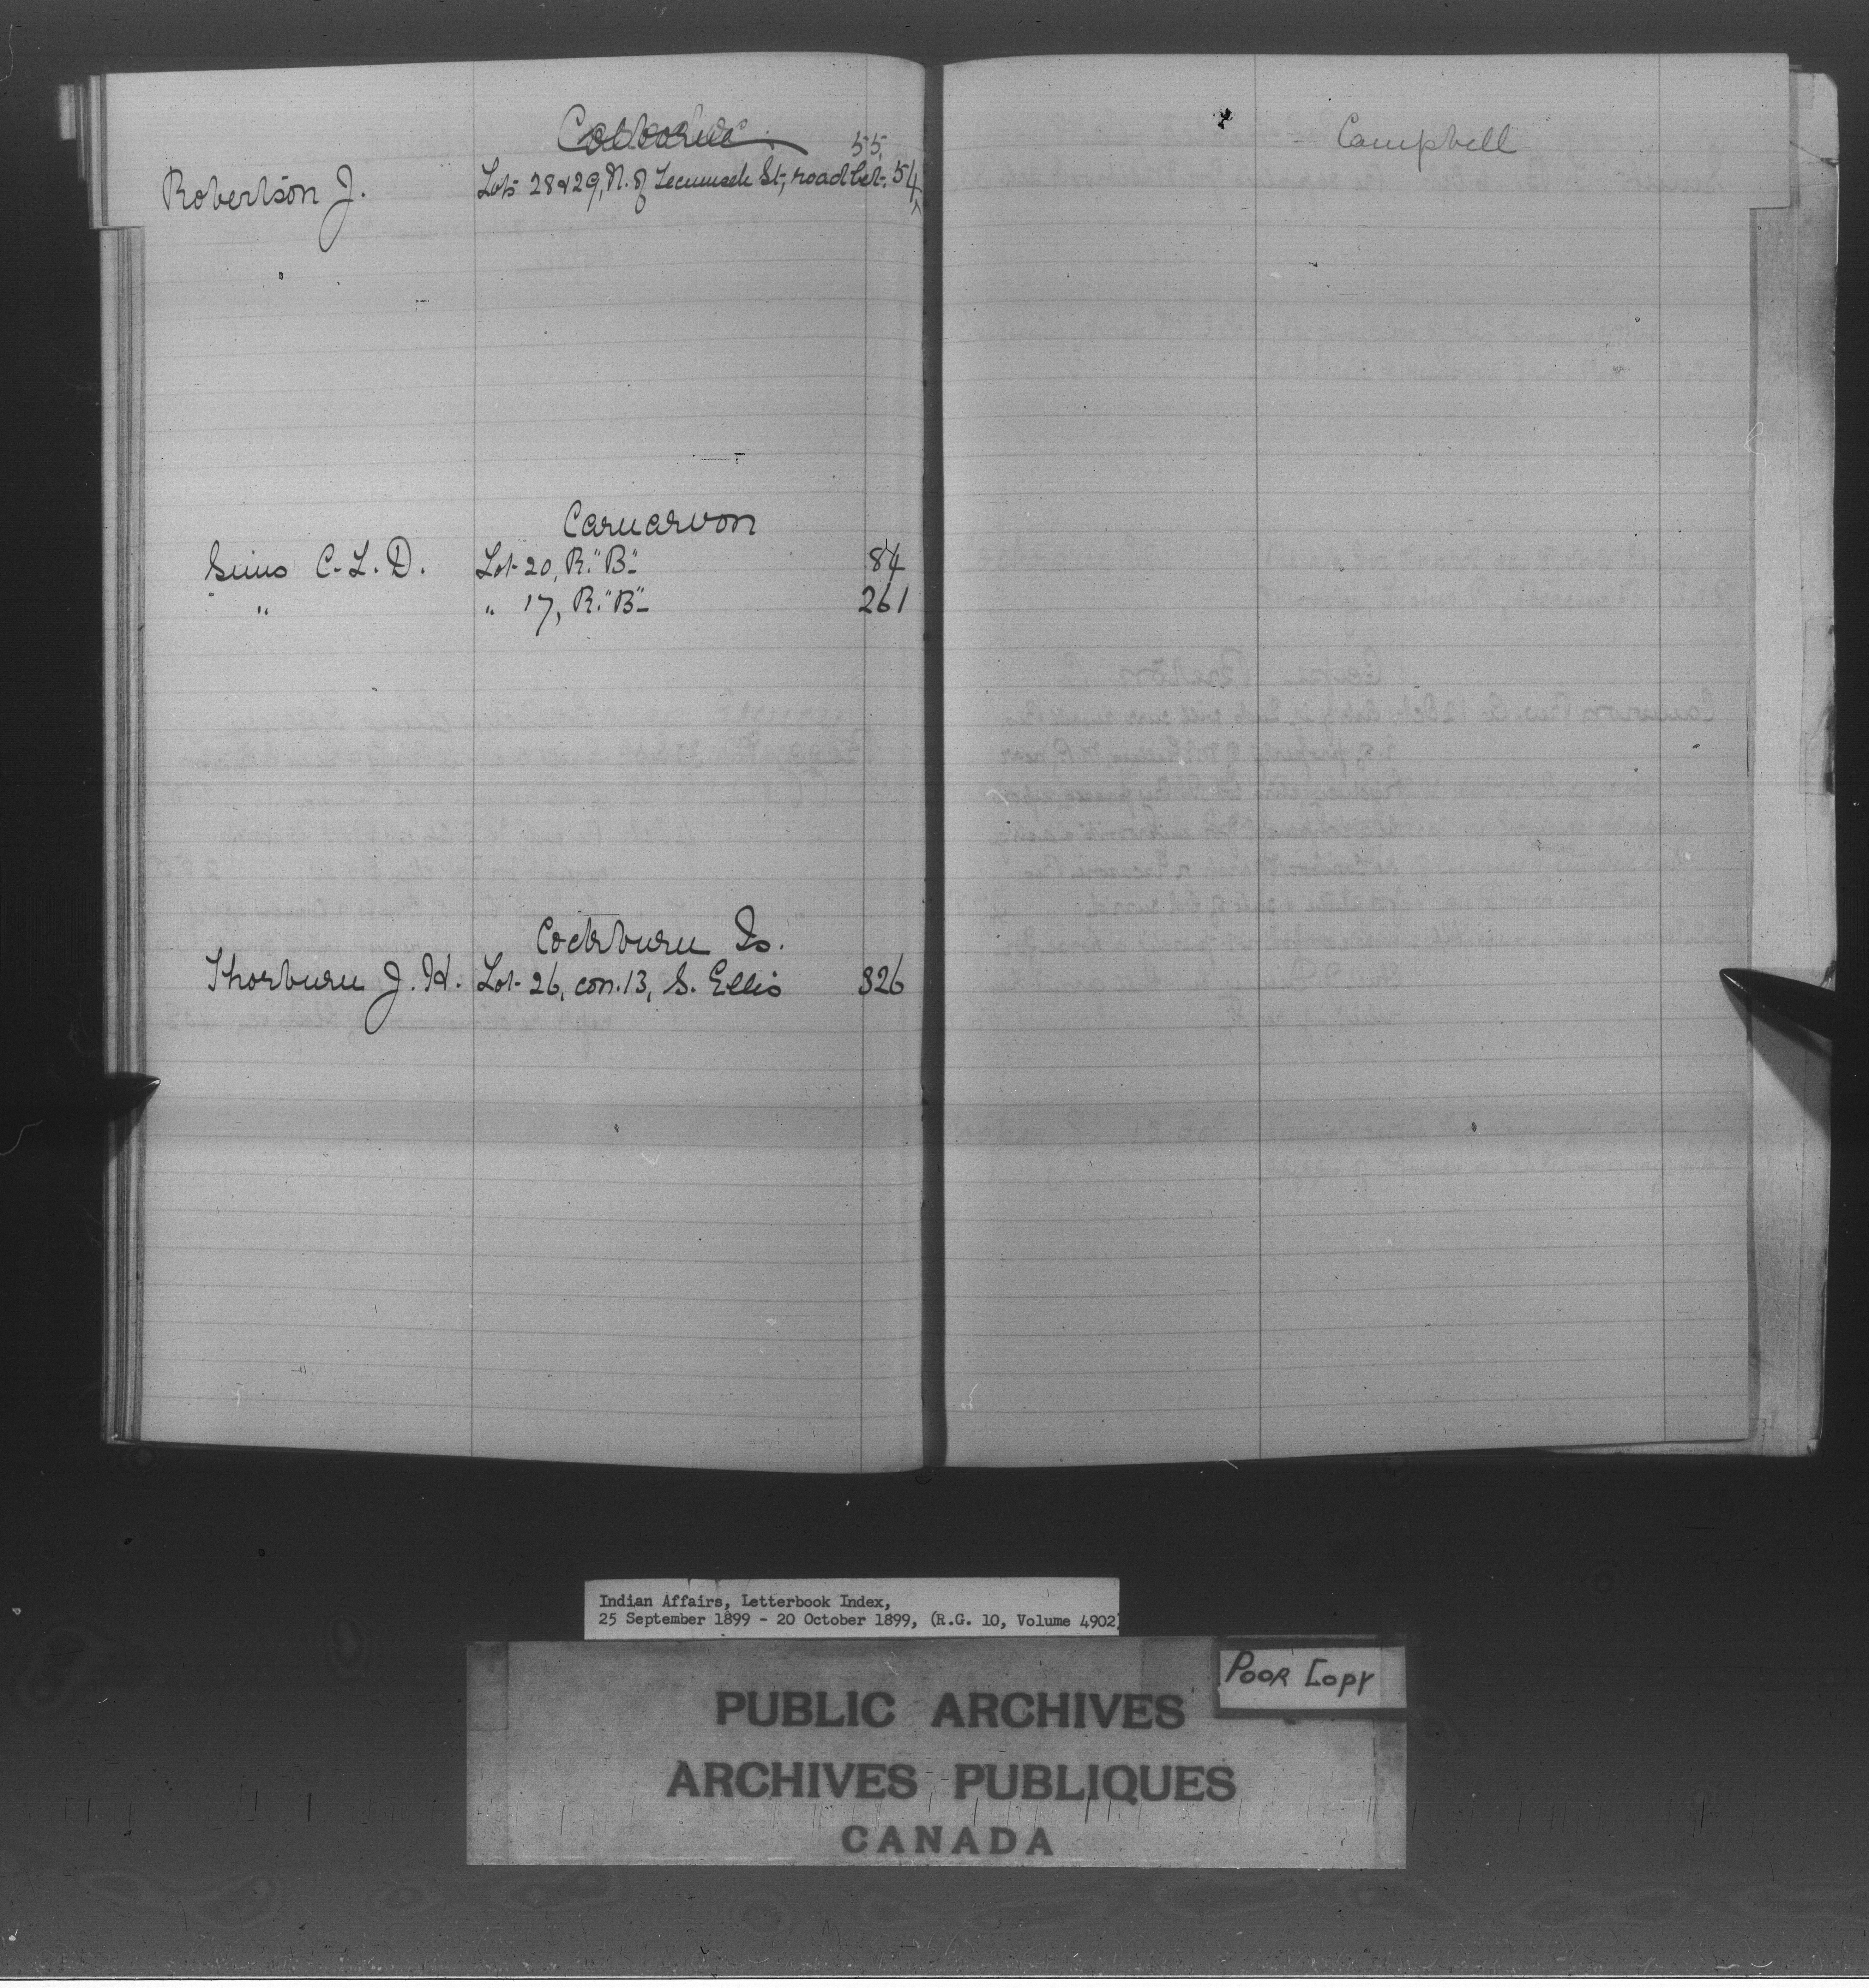 55,
Robertson J. Lots 28 & 29, N. of Tecumseh St, road bet. 54
Carnarvon
Sims C. L. D. Lot 20, R. "B" 84
" " 17, R. "B" 261
Cockburn Is.
Thorburn J. H. Lot 26, con. 13, S. Ellis 326
Campbell
Indian Affairs, Letterbook Index,
25 September 1899 - 20 October 1899, (R.G. 10, Volume 4902)
POOR COPY
PUBLIC ARCHIVES
ARCHIVES PUBLIQUES
CANADA